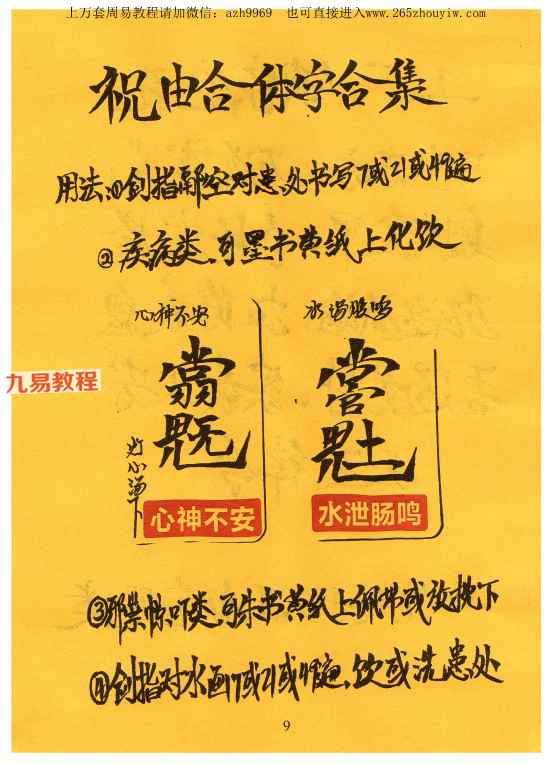 上万套周易教程请加微信：azh9969 也可直接进入www.265zhouyiw.com
祝由合体字合集
用法:①剑指隔空对患处书写7或21或49遍
②疾病类,可墨书黄纸上化饮
心神不安
水泻肠鸣
九易教程
灯心汤下
心神不安
水泄肠鸣
③邪祟惊吓类,可朱书黄纸上佩带或放枕下
④剑指对水画7或21或49遍、饮或洗患处
9